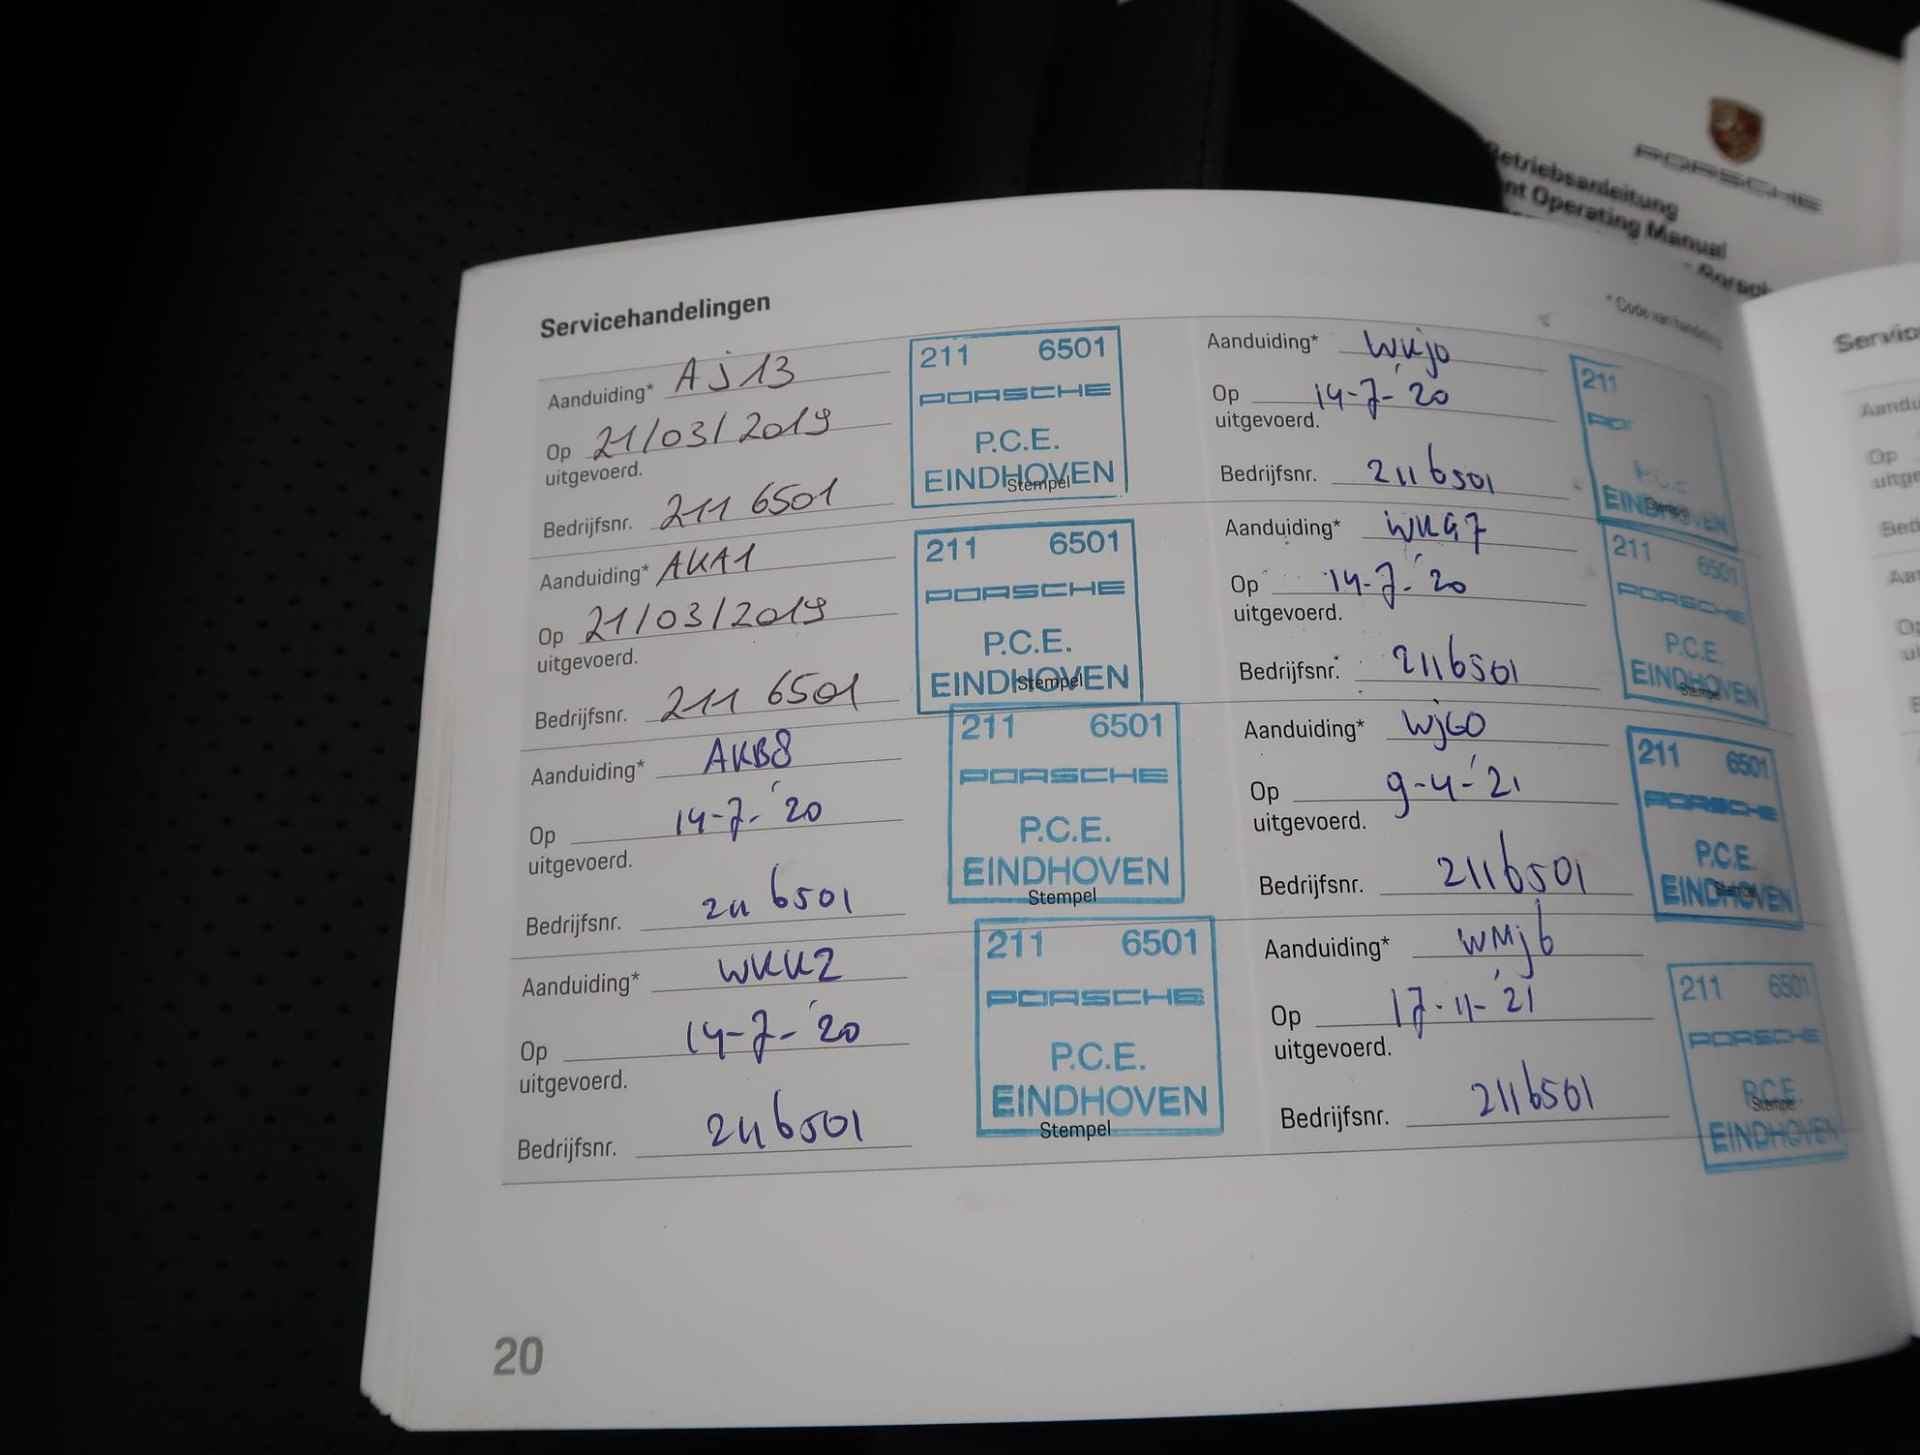 PORSCHE
Betriebsanleitung
nt Operating Manual
Servicehandelingen
* Code van handeling
Aanduiding* AJ13
Op 21/03/2019
uitgevoerd.
Bedrijfsnr. 211 6501
211 6501
PORSCHE
P.C.E.
EINDHOVEN
Stempel
Aanduiding* AKA1
Op 21/03/2019
uitgevoerd.
Bedrijfsnr. 211 6501
211 6501
PORSCHE
P.C.E.
EINDHOVEN
Stempel
Aanduiding* AKB8
Op 14-7-'20
uitgevoerd.
Bedrijfsnr. 211 6501
211 6501
PORSCHE
P.C.E.
EINDHOVEN
Stempel
Aanduiding* WKK2
Op 14-7-'20
uitgevoerd.
Bedrijfsnr. 2116501
211 6501
PORSCHE
P.C.E.
EINDHOVEN
Stempel
Aanduiding* WKj0
Op 14-7-'20
uitgevoerd.
Bedrijfsnr. 2116501
211
P.C.E.
EINDHOVEN
Aanduiding* WK97
Op 14-7-'20
uitgevoerd.
Bedrijfsnr. 2116501
211 6501
PORSCHE
P.C.E.
EINDHOVEN
Stempel
Aanduiding* WjG0
Op 9-4-'21
uitgevoerd.
Bedrijfsnr. 2116501
211 6501
PORSCHE
P.C.E.
EINDHOVEN
Aanduiding* WMj6
Op 17-11-'21
uitgevoerd.
Bedrijfsnr. 2116501
211 6501
PORSCHE
P.C.E.
Stempel
EINDHOVEN
20